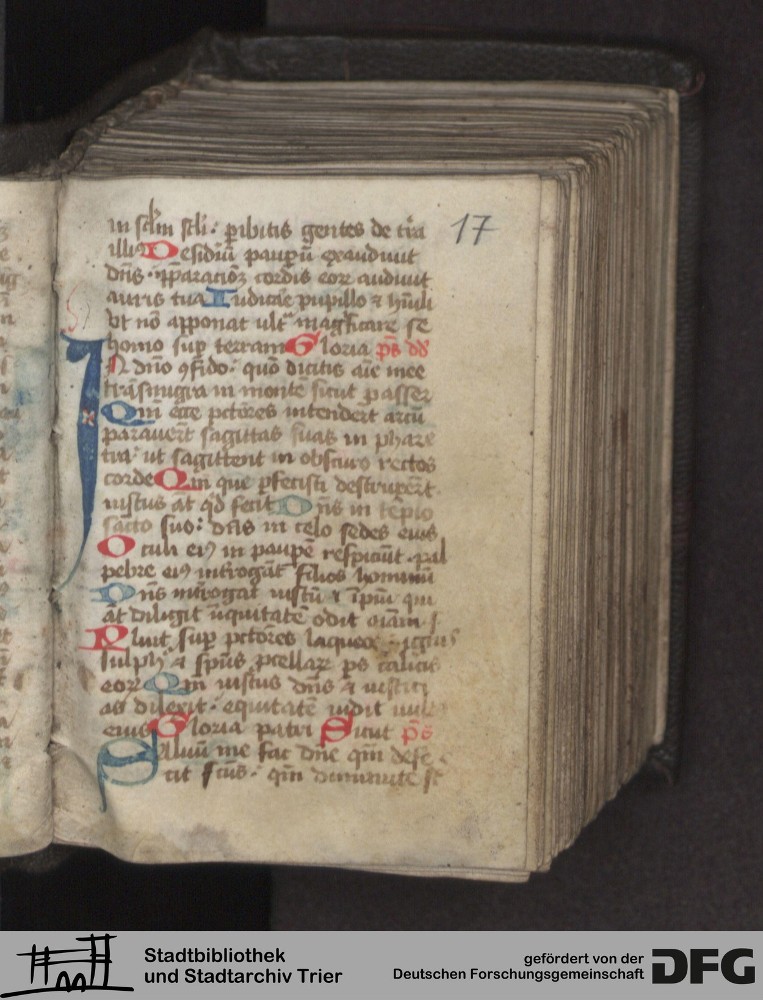 17
in sclm scli · peribitis gentes de tra
illiꝰ Desidiū pauꝑū exaudiuit
dn̄s · p̄paracioēꝫ cordis eoꝝ audiuit
auris tua Iudicāe pupillo ⁊ hūili
vt nō apponat ultᵃ magficare se
homo sup terram Gloria ps dd
In dn̄o ꝯfido · quō dicitis aīe mee
trāsmigra in montē sicut passer
Qm̄ ecce pctōres intendert arcū
parauert sagittas suas in pharetra
tra · ut sagittent in obscuro rectos
corde Qm̄ que ꝑfecisti destruxert
iustus āt qd fecit Dn̄s in tēplo
sācto suo : dn̄s in celo sedes eius
Oculi eiꝰ in pauꝑē respiciūt · pal
pebre eiꝰ introgāt filios hominū
Dn̄s introgat iustū ⁊ īpiū qui
āt diligit iiquitatē odit aīam s
Pluit sup pctōres laqueos · ignis
sulphʳ ⁊ spūs ꝓcellaꝝ ps calicis
eoꝝ Qm̄ iustus dn̄s ⁊ iustici
as dilexit · equitatē uidit uul
eius Gloria patri Sicut ps
Saluū me fac dn̄e qm̄ defe
cit scūs · qm̄ diminute st
Stadtbibliothek
und Stadtarchiv Trier
gefördert von der
Deutschen Forschungsgemeinschaft
DFG